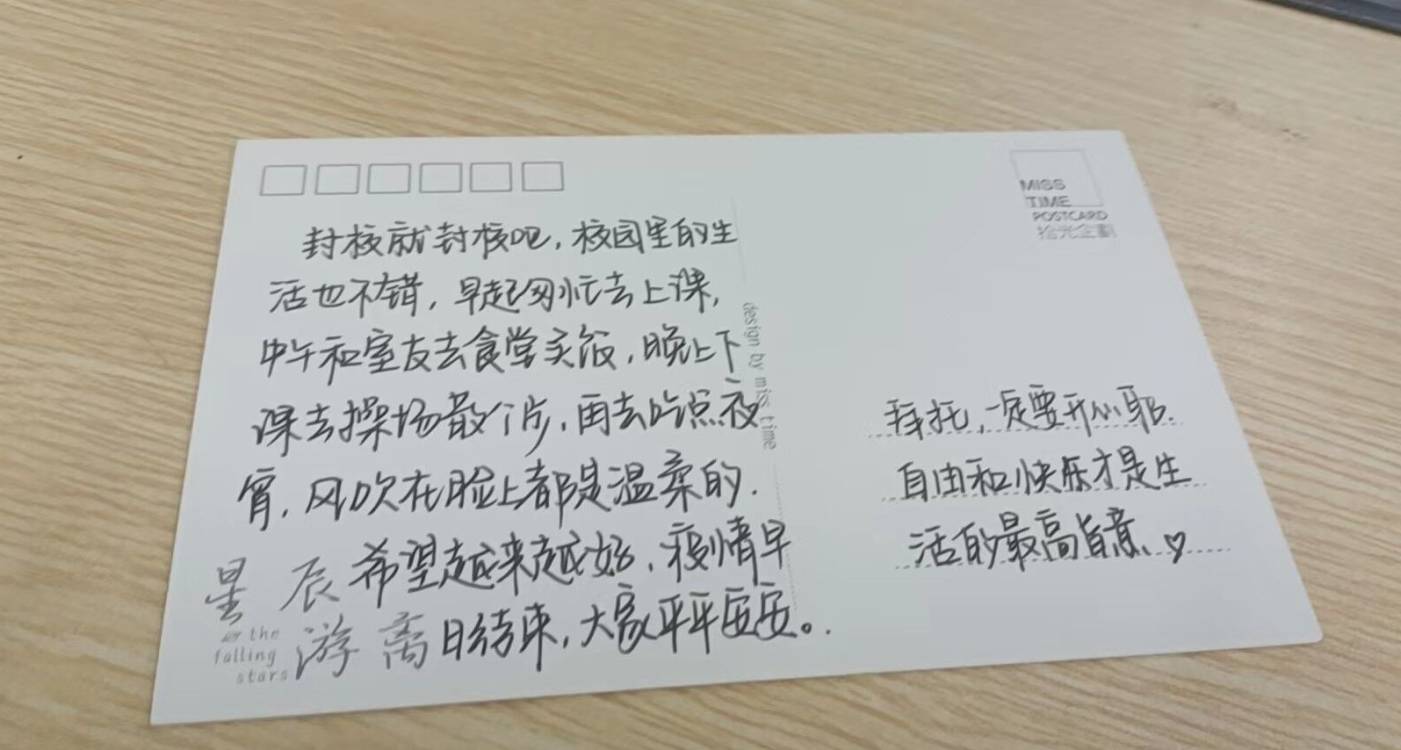 封校就封校吧，校园里的生
活也不错，早起匆忙去上课，
中午和室友去食堂买饭，晚上下
课去操场散个步，再去吃点夜
宵，风吹在脸上都是温柔的.
希望越来越好，疫情早
日结束，大家平平安安。.
星辰
游离
the
falling
stars
design by miss time
MISS
TIME
POSTCARD
拾光企劃
拜托，一定要开心耶.
自由和快乐才是生
活的最高旨意、♡